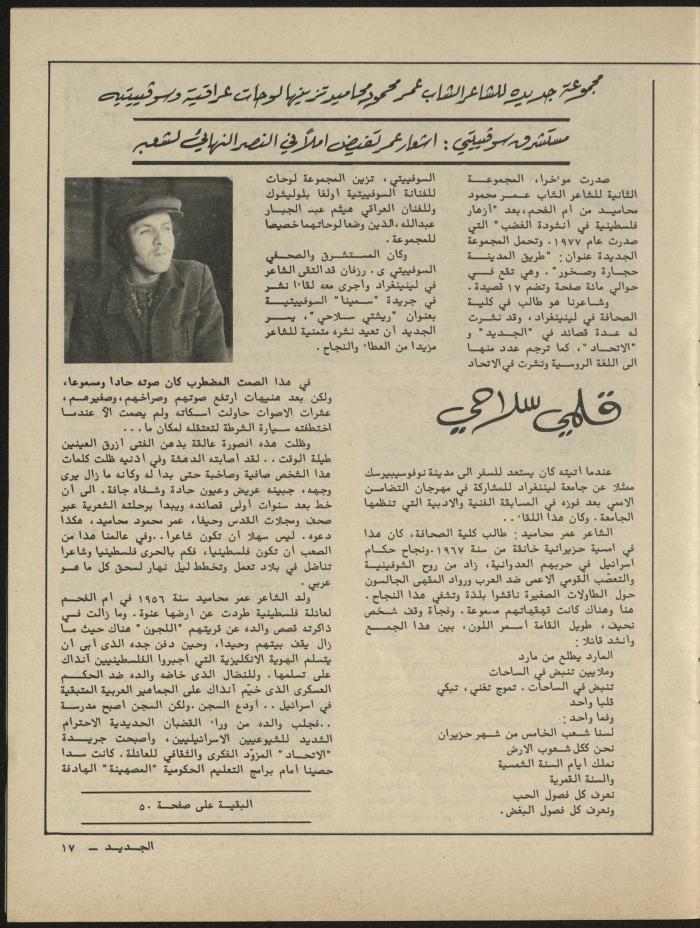 مجموعة جديدة للشاعر الشاب عمر محمود محاميد تزينها لوحات عراقية وسوفييتيه
مستشرق سوفييتي : اشعار عمر تفيض املاً في النصر النهائي لشعبه
صدرت مو٬خرا، المجموعة
الثانية للشاعر الشاب عمر محمود
محاميد من ام الفحم،بعد "أزهار
فلسطينية في أنشودة الغضب" التي
صدرت عام ١٩٧٧. وتحمل المجموعة
الجديدة عنوان: "طريق المدينة
حجارة وصخور". وهي تقع في
حوالي مائة صفحة وتضم ١٧ قصيدة.
وشاعرنا هو طالب في كلية
الصحافة في لينينغراد، وقد نشرت
له عدة قصائد في "الجديد" و
"الاتحاد"، كما ترجم عدد منها
الى اللغة الروسية ونشرت في الاتحاد
السوفييتي، تزين المجموعة لوحات
للفنانة السوفييتية اولغا بلوليثوك
وللفنان العراقي هيثم عبد الجبار
عبدالله،الذين وضعا لوحاتهما خصيصا
للمجموعة.
وكان المستشرق والصحفي
السوفييتي ي. رزفان قد التقى الشاعر
في لينينغراد وأجرى معه لقا٬ا نشر
في جريدة "سمينا" السوفييتية
بعنوان "ريشتي سلاحي"، يسر
الجديد أن تعيد نشره متمنية للشاعر
مزيدا من العطا٬ والنجاح.
قلمي سلاحي
عندما أتيته كان يستعد للسفر الى مدينة نوفوسيبيرسك
ممثلا عن جامعة ليننغراد للمشاركة في مهرجان التضامن
الاممي بعد فوزه في المسابقة الفنية والادبية التي تنظمها
الجامعة. وكان هذا اللقا٬..
الشاعر عمر محاميد: طالب كلية الصحافة، كان هذا
في امسية حزيرانية خانقة من سنة ١٩٦٧.ونجاح حكام
اسرائيل في حربهم العدوانية، زاد من روح الشوفينية
والتعصّب القومي الاعمى ضد العرب ورواد المقهى الجالسون
حول الطاولات الصغيرة ناقشوا بلذة وتشفي هذا النجاح.
هنا وهناك كانت قهقهاتهم مسموعة. وفجأة وقف شخص
نحيف، طويل القامة أسمر اللون، بين هذا الجمع
وأنشد قائلا:
المارد يطلع من مارد
وملايين تنبض في الساحات
تنبض في الساحات. تموج تغني، تبكي
قلبا واحد
وفما واحد:
لسنا شعب الخامس من شهر حزيران
نحن ككل شعوب الارض
نملك أيام السنة الشمسية
والسنة القمرية
نعرف كل فصول الحب
ونعرف كل فصول البغض.
في هذا الصمت المضطرب كان صوته حادا ومسموعا،
ولكن بعد هنيهات ارتفع صوتهم وصراخهم،وصفيرهم،
عشرات الاصوات حاولت اسكاته ولم يصمت الآ عندما
اختطفته سيارة الشرطة لتعتقله لمكان ما...
وظلت هذه الصورة عالقة بذهن الفتى أزرق العينين
طيلة الوقت.. لقد أصابته الدهشة وفي أذنيه ظلت كلمات
هذا الشخص صافية وصاخبة حتى بدا له وكأنه ما زال يرى
وجهه، جبينه عريض وعيون حادة وشفاه جافة. الى أن
خط بعد سنوات أولى قصائده ويبدأ برحلته الشعرية عبر
صحف ومجلات القدس وحيفا، عمر محمود محاميد، هكذا
دعوه. ليس سهلا أن تكون شاعرا..وفي عالمنا هذا من
الصعب أن تكون فلسطينيا، فكم بالحرى فلسطينيا وشاعرا
تناضل في بلاد تعمل وتخطط ليل نهار لسحق كل ما هو
عربي.
ولد الشاعر عمر محاميد سنة ١٩٥٦ في ام الفحم
لعائلة فلسطينية طردت عن ارضها عنوة. وما زالت في
ذاكرته قصص والده عن قريتهم "اللجون" هناك حيث ما
زال يقف بيتهم وحيدا، وحين دفن جده الذى أبى أن
يتسلم الهوية الانكليزية التي أجبروا الفلسطينيين آنذاك
على تسلمها. وللنضال الذى خاضه والده ضد الحكم
العسكرى الذى خيّم آنذاك على الجماهير العربية المتبقية
في اسرائيل.. أودع السجن.ولكن السجن أصبح مدرسة
..فجلب والده من ورا٬ القضبان الحديدية الاحترام
الشديد للشيوعيين الاسرائيليين، وأصبحت جريدة
"الاتحاد" المزوّد الفكرى والثقافي للعائلة. كانت سدا
حصينا أمام برامج التعليم الحكومية "المصهينة" الهادفة
البقية على صفحة ٥٠
الجديد – ١٧